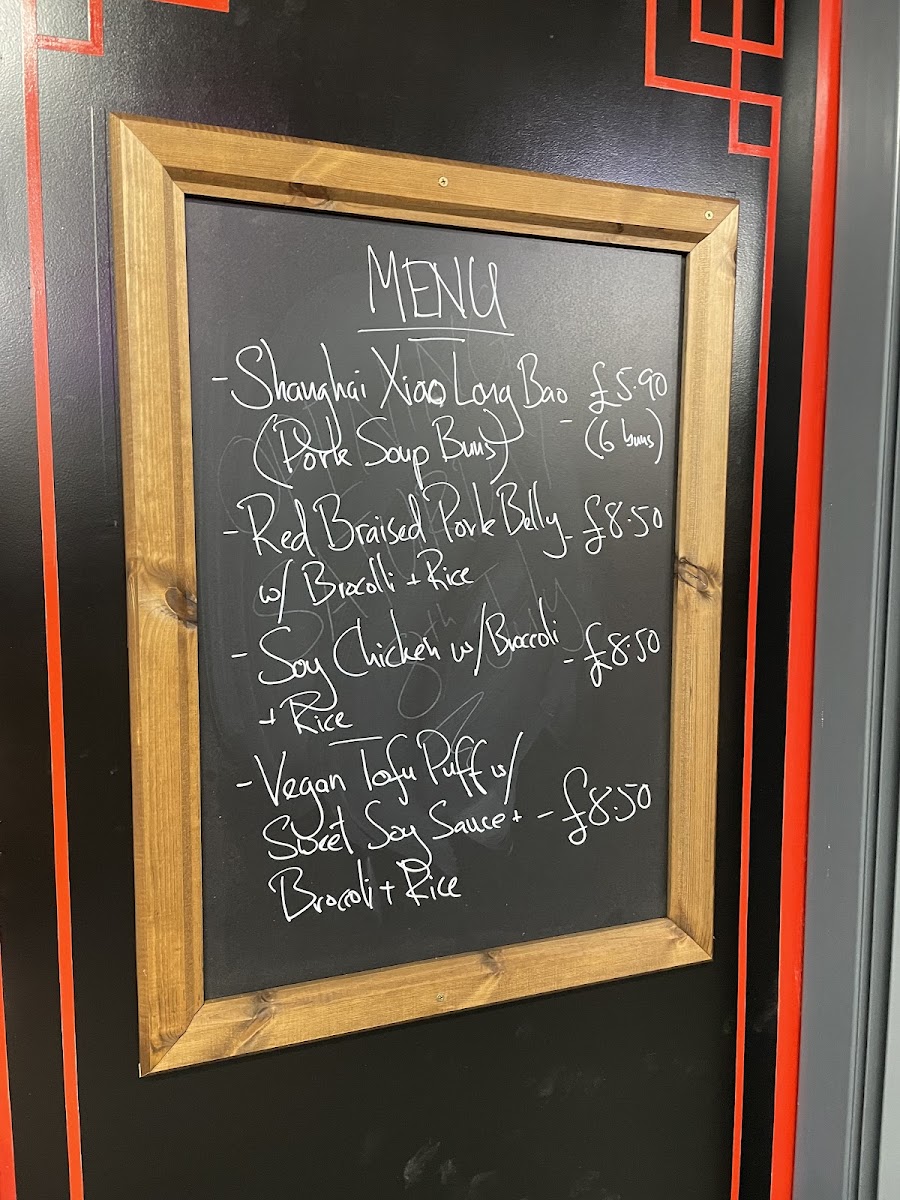 MENU
- Shanghai Xiao Long Bao - £5.90
(Pork Soup Buns) (6 buns)
- Red Braised Pork Belly - £8.50
w/ Brocolli + Rice
- Soy Chicken w/ Broccoli - £8.50
+ Rice
- Vegan Tofu Puff w/
Sweet Soy Sauce + - £8.50
Broccoli + Rice